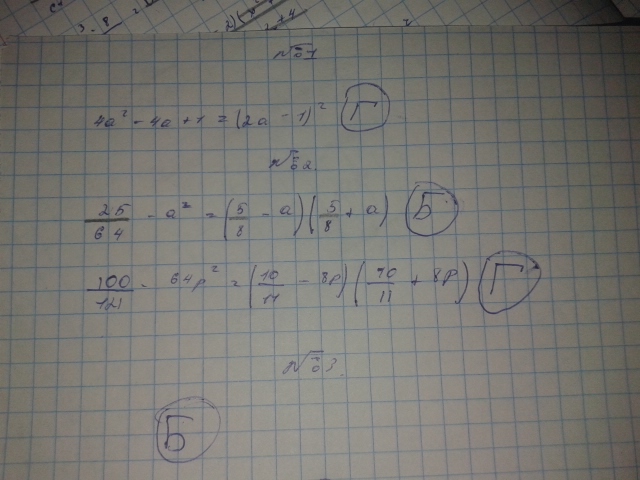 №1
4a² - 4a + 1 = (2a - 1)² Г
№2
25/64 - a² = (5/8 - a)(5/8 + a) Б
100/121 - 64p² = (10/11 - 8p)(10/11 + 8p) Г
№3.
Б